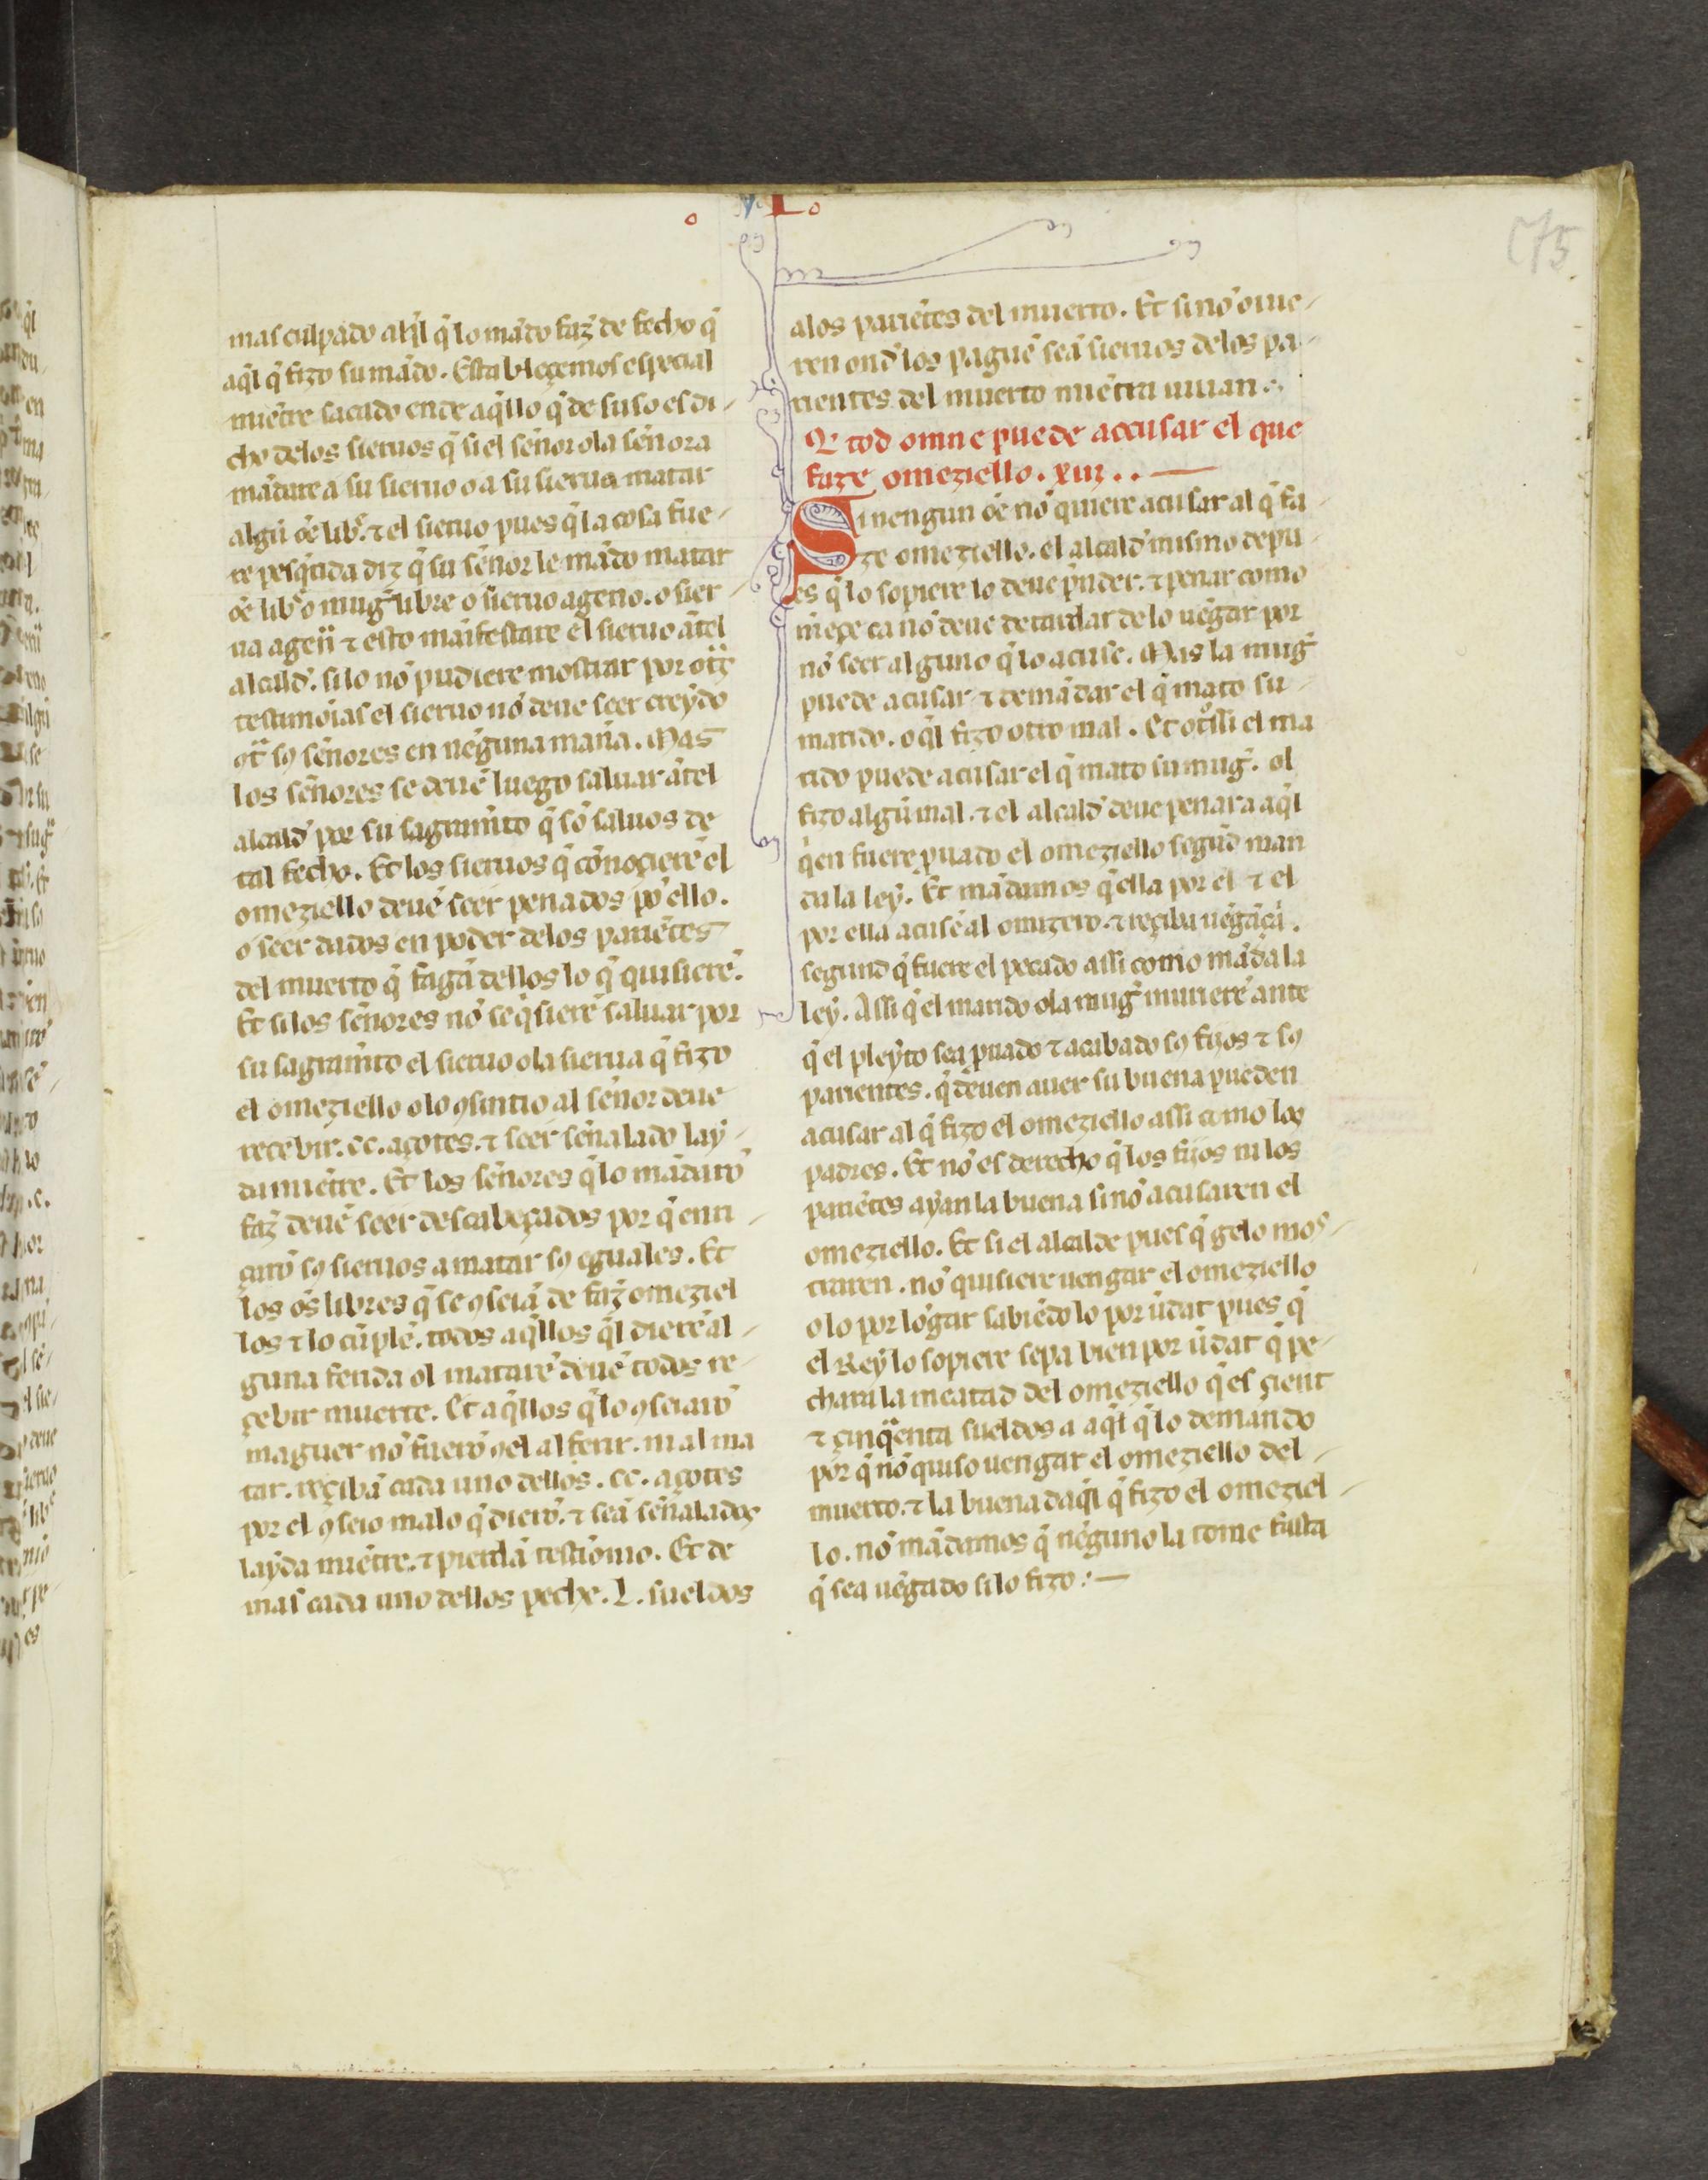 v. Lo
175
mas culpado aq̃l q̃ lo mãdo faz̃ de fecho q̃
aq̃l q̃ fizo su mãdo. Estableçemos espeçial
miẽtre sacado ende aq̃llo q̃ de suso es di-
cho delos sieruos q̃ si el señor ola señora
mãdare a su sieruo o a su sierua matar
algũ oẽ lib̃. ⁊ el sieruo pues q̃ la cosa fue-
re pesq̃rida diz q̃ su señor le mãdo matar
oẽ lib̃ o mug̃ libre o sieruo ageno. o sier-
ua agẽa ⁊ esto mãifestare el sieruo ãtel
alcald̃. si lo nõ pudiere mostrar por
testimõias el sieruo nõ deue seer creydo
sꝯ señores en nẽguna mañ̃a. Mas
los señores se deuẽ luego saluar ãtel
alcald̃ por su sagramẽto q̃ sõ saluos de
tal fecho. Et los sieruos q̃ cõnoçierẽ el
omeziello deuẽ seer penados por ello.
o seer dados en poder delos pariẽtes
del muerto q̃ fagã dellos lo q̃ quisierẽ.
Et silos señores nõ se q̃sierẽ saluar por
su sagramẽto el sieruo ola sierua q̃ fizo
el omeziello o lo ꝯsintio al señor deue
recebir. cc. açotes. ⁊ seer señalado lay-
damiẽtre. Et los señores q̃ lo mãdarõ
faz̃ deuẽ seer descabeçados por q̃ enti-
çarõ sꝯ sieruos a matar sꝯ eguales. Et
los oẽs libres q̃ se ꝯseiã de faz̃ omeziel
los ⁊ lo cũplẽ. todos aq̃llos q̃l dierẽ al-
guna ferida ol matarẽ deuẽ todos re-
çebir muerte. Et aq̃llos q̃ lo ꝯseiarõ
maguer nõ fuerõ ꝯel al ferir. ni al ma
tar. reçibã cada uno dellos. cc. açotes
por el ꝯseio malo q̃ dierõ. ⁊ seã señalados
layda miẽtre. ⁊ pierdã testimonio. Et de
mas cada uno dellos peche. L. sueldos
alos pariẽtes del muerto. Et si nõ ouie-
ren ond̃ los paguẽ seã sieruos delos pa-
rientes del muerto miẽtra uiuan.
Q̃ tod omne puede accusar el que
faze omeziello. xiiij..
Si nengun oẽ nõ quiere acusar al q̃ fa-
ze omeziello. el alcald̃ mismo depu-
es q̃ lo sopiere lo deue p̃nder. ⁊ penar como
meçe ca nõ deue de tardar de lo uẽgar por
nõ seer alguno q̃ lo acuse. Mas la mug̃
puede acusar ⁊ demãdar el q̃ mato su-
marido. o q̃l fizo otro mal. Et otrssi el ma
rido puede acusar el q̃ mato su mug̃. ol
fizo algũ mal. ⁊ el alcald̃ deue penar a aq̃l
q̃en fuere puado el omeziello segũd man
da la ley. Et mãdamos q̃ ella por el ⁊ el
por ella acusẽ al omizero. ⁊ reçiba uẽgãça.
segund q̃ fuere el pecado assi como mãda la
ley. Assi q̃ el marido ola mug̃ murierẽ ante
q̃ el pleyto sea puado ⁊ acabado sꝯ fijos ⁊ sꝯ
parientes. q̃ deuen auer su buena pueden
acusar al q̃ fizo el omeziello assi como los
padres. Et nõ es derecho q̃ los fijos ni los
pariẽtes ayan la buena si nõ acusaren el
omeziello. Et si el alcalde pues q̃ gelo mos-
traren. nõ quisiere uengar el omeziello
o lo por lõgar sabiẽdo lo por ũdat pues q̃
el Rey lo sopiere sepa bien por ũdat q̃ pe-
chara la meatad del omeziello q̃ es çient
⁊ çinq̃enta sueldos a aq̃l q̃ lo demando
por q̃ nõ quiso uengar el omeziello del-
muerto. ⁊ la buena daq̃l q̃ fizo el omeziel-
lo. nõ mãdamos q̃ nẽguno la tome fasta
q̃ sea uẽgado si lo fizo:—